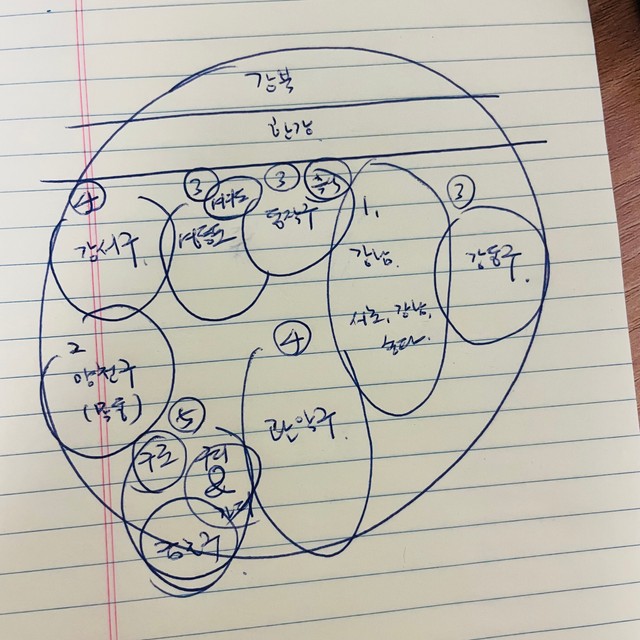 강북
한강
④
강서구.
③
여의도
영등포
③
흑석
동작구
1.
강남.
서초, 강남,
송파.
③
강동구.
2
양천구
(목동)
④
관악구.
⑤
구로
구디
&
가디
금천구